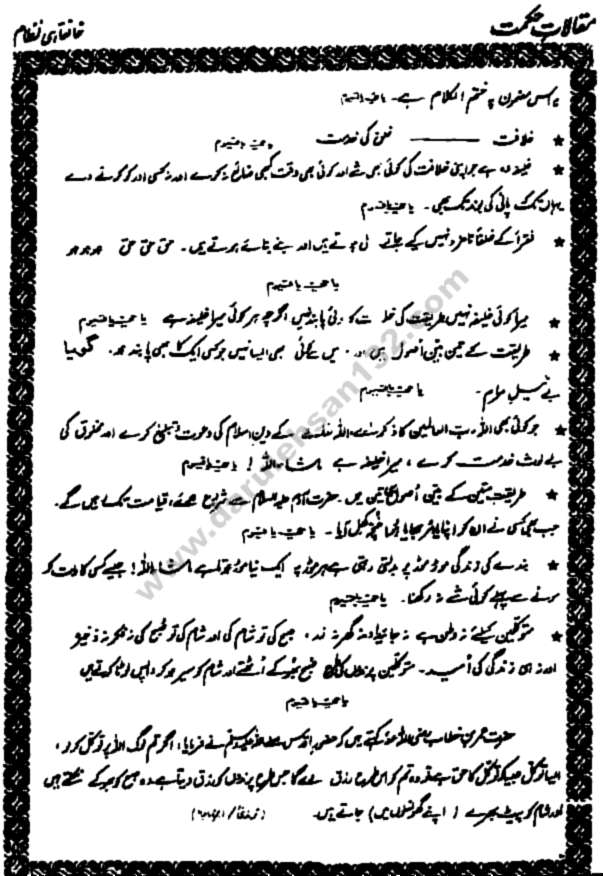 مقالاتِ حکمت
خانقاہی نظام
پہ اس مضمون پہ ختم الکلام ہے۔ یا حیّ یا قیوم
★ خلافت ——— خلق کی خدمت یا حیّ یا قیوم
★ خلیفہ وہ ہے جو اپنی خلافت کی کوئی بھی شے اور کوئی بھی وقت کبھی ضائع نہ کرے اور نہ کسی اور کو کرنے دے
یہاں تک کہ پانی کی بوند تک بھی۔ یا حیّ یا قیوم
★ فقرأ کے خلفأ نامزد نہیں کیے جاتے ہوتے ہیں اور بنے بنائے ہوتے ہیں۔ حق حق حق ہو ہو ہو
یا حیّ یا قیوم
★ میرا کوئی خلیفہ نہیں طریقت کی کا کوئی پابند نہیں اگرچہ ہر کوئی میرا خلیفہ ہے یا حیّ یا قیوم
★ طریقت کے تین اصول ہیں اور میں کوئی بھی ایسا نہیں جو کسی ایک کا بھی پابند ہو۔ گویا
یا حیّ یا قیوم
★ جو کوئی بھی اللہ رب العالمین کا ذکر کرے، اللہ کے دین اسلام کی دعوت و تبلیغ کرے اور مخلوق کی
بے لوث خدمت کرے، میرا خلیفہ ہے ماشاء اللہ! یا حیّ یا قیوم
★ طریقت کے اصول ہیں۔ حضرت آدم علیہ السلام سے شروع ہوئے، قیامت تک رہیں گے۔
جب بھی کسی نے ان کو اپنایا کھل آیا۔ یا حیّ یا قیوم
★ بندے کی زندگی موڑ موڑ پر بدلتی رہتی ہے ہر موڑ پہ ایک نیا موڑ ہوتا ہے ماشاء اللہ! جیسے کسی کا رات کو
مرنے سے پہلے کوئی شے نہ رکھنا۔ یا حیّ یا قیوم
★ متوکلین کیلئے نہ وطن ہے نہ جائیداد نہ گھر نہ در، صبح کی تو شام کی اور شام کی تو صبح کی نہ فکر نہ ذخیرہ
اور نہ ہی زندگی کی اُمید۔ متوکلین پرندوں کی طرح صبح بھوکے اُٹھتے اور شام کو سیر ہو کر واپس لوٹا کرتے ہیں
یا حیّ یا قیوم
حضرت عمر بن خطاب رضی اللہ عنہ کہتے ہیں کہ حضور اقدس صلی اللہ علیہ وسلم نے فرمایا، اگر تم لوگ اللہ پر توکل کرو،
ایسا توکل جیسا کہ توکل کا حق ہے تو وہ تم کو اس طرح رزق دے گا جس طرح پرندوں کو رزق دیتا ہے وہ صبح کو بھوکے نکلتے ہیں
اور شام کو پیٹ بھرے (اپنے گھونسلوں میں) جاتے ہیں۔
www.darulehsan132.com